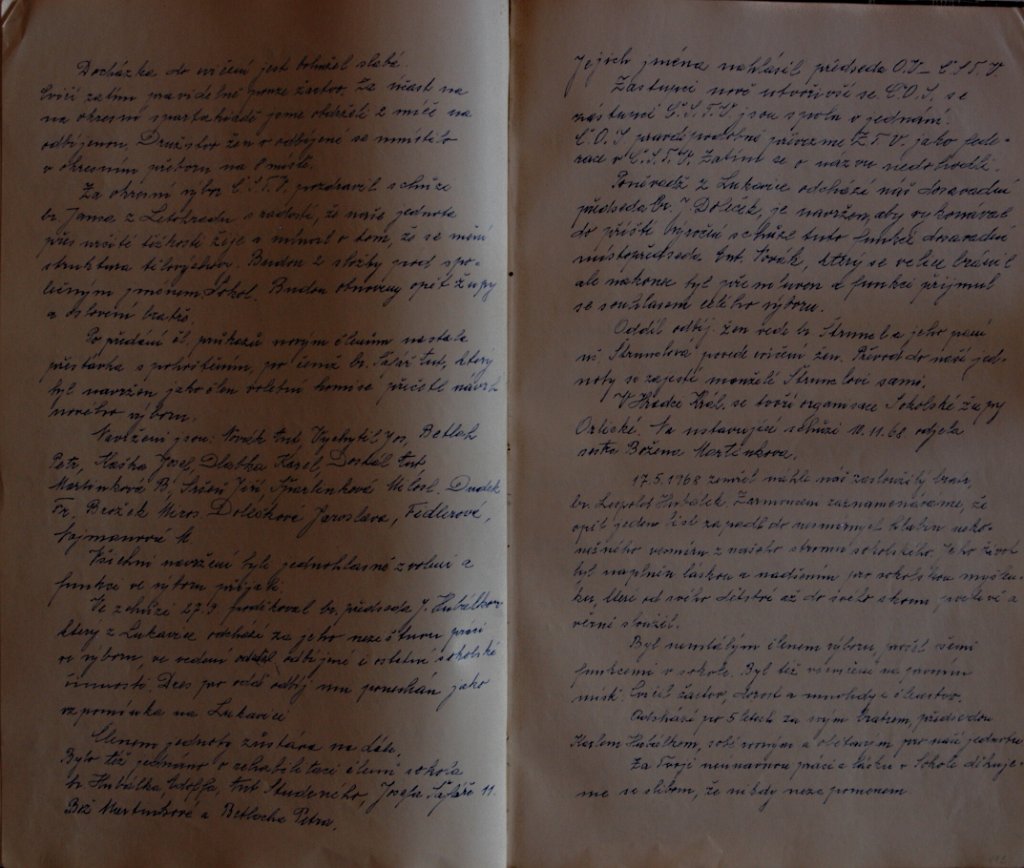 Docházka do cvičení jest bohužel slabá.
Cvičí zatím pravidelně pouze žactvo. Za účast na
na okresní spartakiádě jsme obdrželi 2 míče na
odbíjenou. Družstvo žen v odbíjené se umístilo
v okresním přeboru na 1 místě.
Za okresní výbor Č.S.T.V. pozdravil schůzi
br. Jansa z Letohradu s radostí, že naše jednota
přes určité těžkosti žije a mluvil o tom, že se mění
struktura tělovýchovy. Budou 2 složky pod spo-
lečným jménem Sokol. Budou obnoveny opět župy
a oslovení bratře.
Po předání čl. průkazů novým členům nastala
přestávka s pohoštěním, po čemž br. Ant, který
byl navržen jako člen volební komise přečetl návrh
nového výboru.
Navrženi jsou: Novák Ant, Vychytil Jos, Betlach
Petr, Kaška Josef, Dlabka Karel, Dostál Ant,
Martinková B, Jiří, Milosl. Dudek
Fr. Brožek Miros. Dolečková Jaroslava, Fedlerová,
Najmanová M.
Všichni navržení byli jednohlasně zvoleni a
funkce ve výboru přijali.
Ve schůzi 27.9. poděkoval br. předseda J. Hubálkovi
který z Lukavice odchází za jeho nezištnou práci
ve výboru, ve vedení oddíl. odbíjené i ostatní sokolské
činnosti. Dres pro oddíl odbíj mu ponechán jako
vzpomínka na Lukavici
Členem jednoty zůstává nadále.
Bylo též jednáno o rehabilitaci členů sokola
br. Hubálka, Ant. Studeného, Josefa 11
Bož Martinkové a Betlacha Petra.
Jejich jména nahlásil předseda O.V. Č.S.T.V.
Zástupci nově utvořivší se Č.O.S. se
zástupci Č.S.T.V. jsou spolu v jednání.
Č.O.S. pravděpodobně převezme Z.T.V. jako fede-
race v Č.S.T.V. Zatím se o názvu nedohodli.
Poněvadž z Lukavice odchází náš dosavadní
předseda br. J Doleček, je navržen, aby vykonával
do příští výroční schůze tuto funkci dosavadní
místopředseda Ant. Novák, který se velice bránil
ale nakonec byl přemluven a funkci přijmul
se souhlasem celého výboru.
Oddíl odbíj. žen vede br. Strumel a jeho paní
Strumelová povede cvičení žen. Převod do naší jed-
noty si zajistí manželé Strumelovi sami.
V Hradci Král. se tvoří organisace Sokolské župy
Orlické. Na ustavující schůzi 10.11.68 odjela
sestra Božena Martinková.
17.5.1968 zemřel náhle náš zasloužilý bratr,
br. Leopold Hubálek. Zármoucem zaznamenáváme, že
opět jeden list zapadl do nesmírných hlubin neko-
nečného vesmíru z našeho stromu sokolského. Jeho život
byl naplněn láskou a nadšením pro sokolskou myšlen-
ku, které od svého dětství až do svého skonu poctivě a
věrně sloužil.
Byl nemálým členem výboru, prošel všemi
funkcemi v sokole. Byl též vzorným na pravém
místě. Cvičil žactvo, dorost a mnohdy i členstvo.
Odchází po 5 letech za svým bratrem, předsedou
Karlem Hubálkem, a obětavým pro naši jednotu
Za Tvoji neúnavnou práci a lásku v Sokole děkuje-
me se slibem, že nikdy nezapomenem